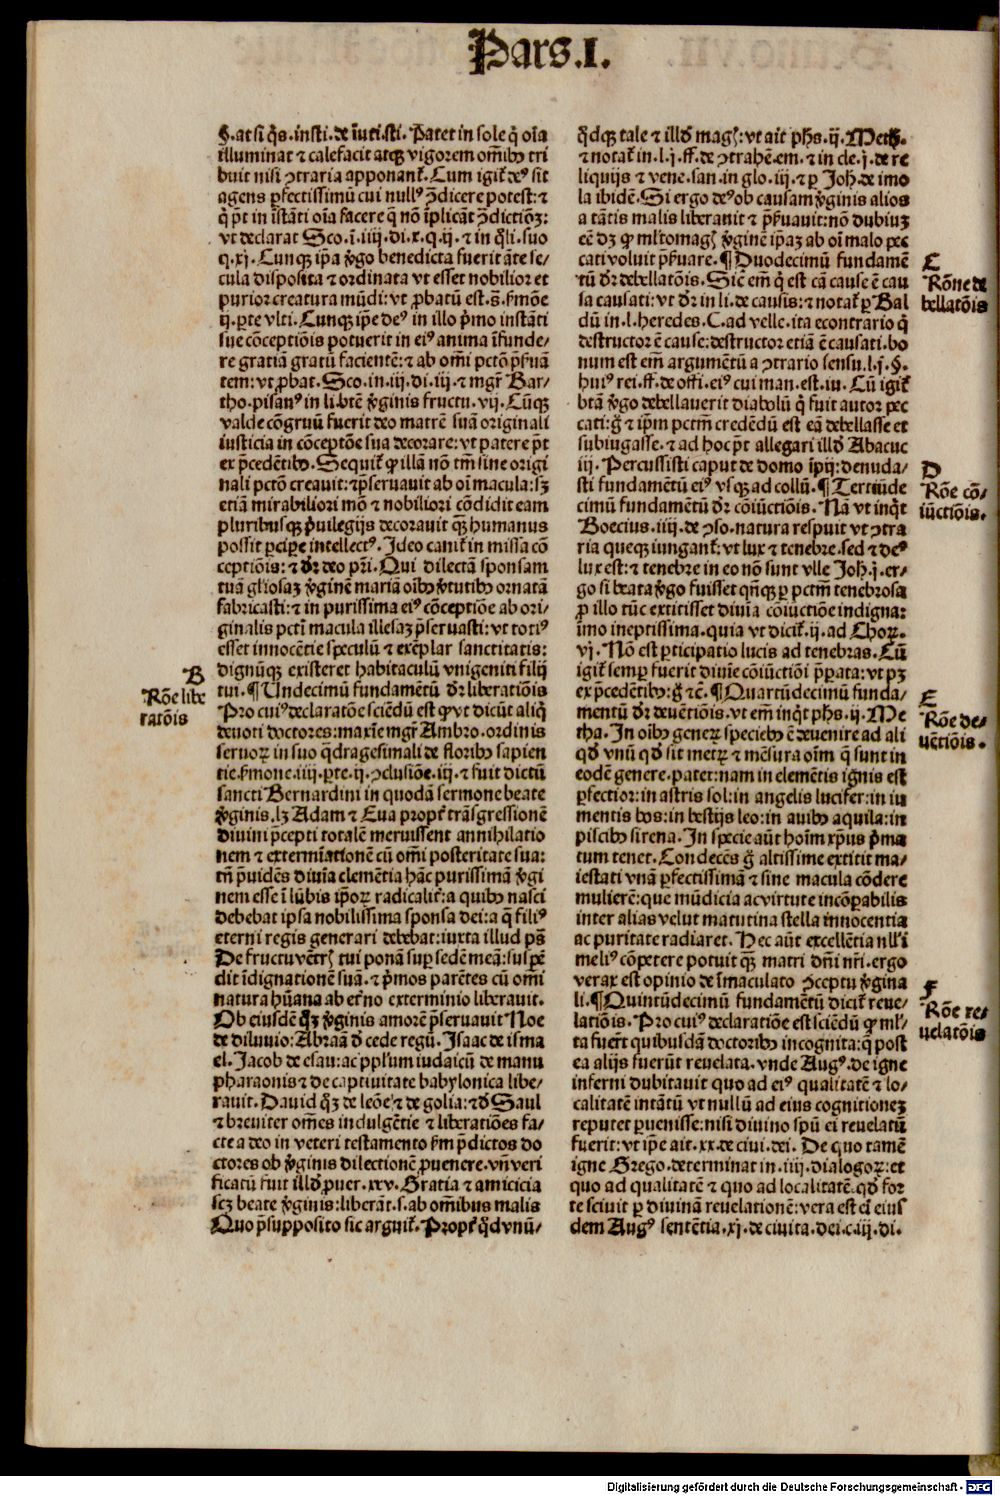 Pars.I.
§.at si q̄s.insti.de iuti.sti. Patet in sole q̄ oīa
illuminat ⁊ calefacit atq̄ꝫ vigorem om̄ibꝰ tri
buit nisi ꝯtraria apponant᷑. Cum igit᷑ deꝰ sit
agens ꝑfectissimū cui nullꝰ ꝯdicere potest: ⁊
q̄ p̄t in īstāti oīa facere q̄ nō īplicāt ꝯdictiōꝫ:
vt declarat Sco.ī.iiij.di.x.q.ij.⁊ in q̄li.suo
q.xj. Cunqꝫ ip̄a v̄go benedicta fuerit āte se/
cula disposita ⁊ ordinata vt esset nobilior et
purior creatura mūdi: vt ꝓbatū est.s̄.ẜmōe
ij.ꝑte vlti. Cunqꝫ ip̄e deꝰ in illo p̄mo instāti
sue cōceptiōis potuerit in eiꝰ anima īfunde/
re gratiā gratū facientē: ⁊ ab om̄i pctō p̄ẜuā
tem: vt ꝓbat.Sco.in.iij.di.iij.⁊ mgr̄ Bar/
tho.pisanꝰ in li.btē v̄ginis fructu.vij. Cūqꝫ
valde cōgruū fuerit deo matrē suā originali
iusticia in cōceptōe sua decorare: vt patere p̄t
ex p̄cedētibꝰ. Sequit᷑ ꝙ illā nō tm̄ sine origi
nali pctō creauit: ⁊ p̄seruauit ab oī macula: sꝫ
etiā mirabiliori mō ⁊ nobiliori cōdidit eam
pluribusqꝫ p̄uilegijs decorauit q̄ꝫ humanus
possit ꝑcipe intellectꝰ. Ideo canit᷑ in missa cō
ceptiōis: ⁊ dr̄ deo pr̄i. Qui dilectā sponsam
tuā gl'iosaꝫ v̄ginē mariā oībꝰ v̄tutibꝰ ornatā
fabricasti: ⁊ in purissima eiꝰ cōceptiōe ab ori/
ginalis pctī macula illesaꝫ p̄seruasti: vt totiꝰ
esset innocētie speculū ⁊ exēplar sanctitatis:
dignūqꝫ existeret habitaculū vnigeniti filij
tui. ¶ Undecimū fundamētū dr̄ liberatiōis
Pro cuiꝰ declaratōe sciēdū est ꝙ vt dicūt aliq̄
deuoti doctores: maxīe mgr̄ Ambro.ordinis
seruoꝝ in suo q̄dragesimali de floribꝰ sapien
tie ẜmone.iiij.ꝑte.ij.ꝯclusiōe.iij.⁊ fuit dictū
sancti Bernardini in quodā sermone beate
v̄ginis.lꝫ Adam ⁊ Eua propt᷑ trāsgressionē
diuini p̄cepti totalē meruissent annihilatio
nem ⁊ exterminationē cū om̄i posteritate sua:
tn̄ p̄uidēs diuīa clemētia hāc purissimā v̄gi
nem esse ī lūbis ip̄oꝝ radicalit᷑: a quibꝰ nasci
debebat ipsa nobilissima sponsa dei: a q̄ filiꝰ
eterni regis generari debebat: iuxta illud ps̄
De fructu vētr̄ tui ponā suꝑ sedē meā: suspē
dit īdignationē suā.⁊ p̄mos parētes cū om̄i
natura hūana ab et᷑no exterminio liberauit.
Ob eiusdē q̄ꝫ v̄ginis amorē p̄seruauit Noe
de diluuio: Abraā d̄ cede regū. Isaac de isma
el. Jacob de esau: ac pp̄l'um iudaicū de manu
pharaonis ⁊ de captiuitate babylonica libe/
rauit. Dauid q̄ꝫ de leōe ⁊ de golia: ⁊ d̄ Saul
⁊ breuiter om̄es indulgētie ⁊ liberatiōes fa/
cte a deo in veteri testamento ẜm p̄dictos do
ctores ob v̄ginis dilectionē ꝓuenere.vn̄ veri
ficatū fuit illd̄ ꝓuer.xxv. Gratia ⁊ amicicia
scꝫ beate v̄ginis: liberāt.s.ab om̄ibus malis
Quo p̄supposito sic arguit᷑. Propt᷑ q̄d vnū/
B
Rōe libe
ratōis
q̄dqꝫ tale ⁊ illd̄ maḡ: vt ait phs.ij.Meth.
⁊ notat᷑ in.l.j.ff.de ꝯtrahē.em.⁊ in cle.j.de re
liquijs ⁊ vene.san.in glo.iij.⁊ ꝑ Joh.de imo
la ibidē. Si ergo deꝰ ob causam v̄ginis alios
a tātis malis liberauit ⁊ p̄ẜuauit: nō dubiuꝫ
eē dꝫ ꝙ ml'tomaḡ v̄ginē ip̄aꝫ ab oī malo pec
cati voluit p̄ẜuare. ¶ Duodecimū fundamē
tū dr̄ debellatōis. Sic em̄ q̄ est cā cause ē cau
sa causati: vt dr̄ in li.de causis: ⁊ notat᷑ ꝑ Bal
dū in.l.heredes.C.ad velle.ita econtrario q̄
destructor ē cause: destructor etiā ē causati.bo
num est em̄ argumētū a ꝯtrario sensu.l.j.§.
huiꝰ rei.ff.de offi.eiꝰ cui man.est.iu. Cū igit᷑
btā v̄go debellauerit diabolū q̄ fuit autor pec
cati: g̊ ⁊ ip̄m pctm̄ credēdū est eā debellasse et
subiugasse.⁊ ad hoc p̄t allegari illd̄ Abacuc
iij. Percussisti caput de domo īpij: denuda/
sti fundamētū eiꝰ vsqꝫ ad collū. ¶ Tertiūde
cimū fundamētū dr̄ cōiūctiōis. Nā vt inq̄t
Boecius.iiij.de ꝯso.natura respuit vt ꝯtra
ria queqꝫ iungant᷑: vt lux ⁊ tenebre.sed ⁊ deꝰ
lux est: ⁊ tenebre in eo nō sunt vlle Joh.j.er/
go si beata v̄go fuisset qn̄qꝫ ꝑ pctm̄ tenebrosa
ꝓ illo tūc extitisset diuīa cōiūctiōe indigna:
īmo ineptissima.quia vt dicit᷑.ij.ad Choꝝ.
vj. Nō est ꝑticipatio lucis ad tenebras. Cū
igit᷑ semꝑ fuerit diuīe cōiūctiōi p̄ꝑata: vt pꝫ
ex p̄cedētibꝰ: g̊ ⁊c̄. ¶ Quartūdecimū funda/
mentū dr̄ deuētiōis.vt em̄ inq̄t phs.ij.Me
tha. In oībꝰ geneꝝ speciebꝰ ē deuenire ad ali
qd̄ vnū qd̄ sit metꝝ ⁊ mēsura oīm q̄ sunt in
eodē genere.patet: nam in elemētis ignis est
ꝑfectior: in astris sol: in angelis lucifer: in iu
mentis bos: in bestijs leo: in auibꝰ aquila: in
piscibꝰ sirena. In specie aūt hoīm xp̄us p̄ma
tum tenet. Condecēs g̊ altissime extitit ma/
iestati vnā ꝑfectissimā ⁊ sine macula cōdere
mulierē: que mūdicia ac virtute incōꝑabilis
inter alias velut matutina stella innocentia
ac puritate radiaret. Hec aūt excellētia nll'i
meliꝰ cōpetere potuit q̄ꝫ matri dn̄i nr̄i.ergo
verax est opinio de īmaculato ꝯceptu v̄gina
li. ¶ Quintūdecimū fundamētū dicit᷑ reue/
latiōis. Pro cuiꝰ declaratiōe est sciēdū ꝙ ml'/
ta fuer̄t quibusdā doctoribꝰ incognita: q̄ post
ea alijs fuerūt reuelata.vnde Augꝰ.de igne
inferni dubitauit quo ad eiꝰ qualitatē ⁊ lo/
calitatē intātū vt nullū ad eius cognitioneꝫ
reputet ꝑuenisse: nisi diuino spū ei reuelatū
fuerit: vt ip̄e ait.xx.de ciui.dei. De quo tamē
igne Grego.determinat in.iiij.dialogoꝝ: et
quo ad qualitatē ⁊ quo ad localitatē.qd̄ for
te sciuit ꝑ diuinā reuelationē: vera est em̄ eius
dem Augꝰ sentētia.xj.de ciuita.dei.c.iij.di.
C
Rōne de
bellatōis
D
Rōe cō/
iūctiōis.
E
Rōe de/
uētiōis.
F
Rōe re/
uelatōis
Digitalisierung gefördert durch die Deutsche Forschungsgemeinschaft - DFG